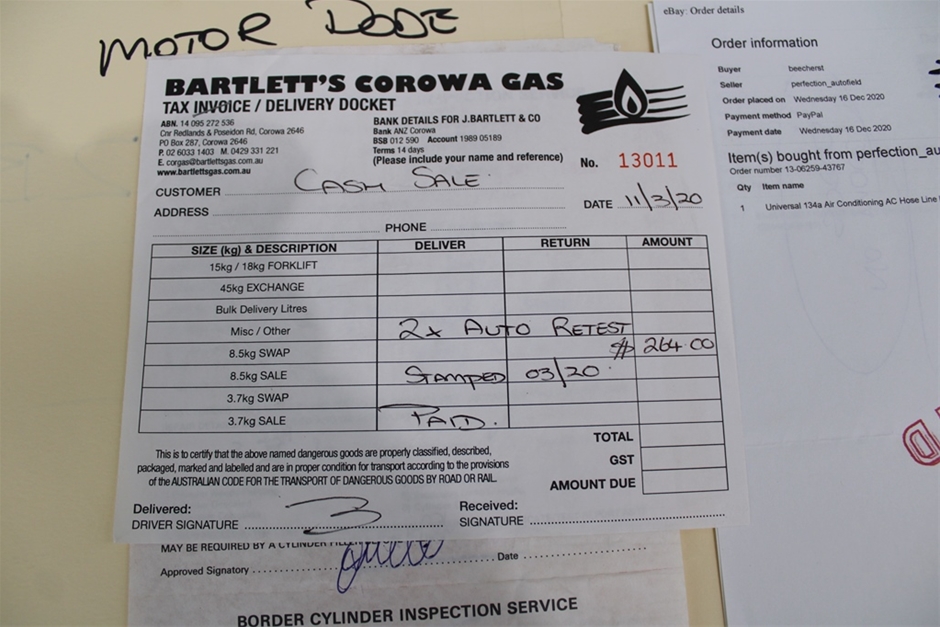 MOTOR DODE
BARTLETT'S COROWA GAS
TAX INVOICE / DELIVERY DOCKET
ABN. 14 095 272 536
Cnr Redlands & Poseidon Rd, Corowa 2646
PO Box 287, Corowa 2646
P. 02 6033 1403 M. 0429 331 221
E. corgas@bartlettsgas.com.au
www.bartlettsgas.com.au
BANK DETAILS FOR J.BARTLETT & CO
Bank ANZ Corowa
BSB 012 590 Account 1989 05189
Terms 14 days
(Please include your name and reference)
No. 13011
CUSTOMER CASH SALE
ADDRESS
DATE 11/3/20
PHONE
SIZE (kg) & DESCRIPTION DELIVER RETURN AMOUNT
15kg / 18kg FORKLIFT
45kg EXCHANGE
Bulk Delivery Litres
Misc / Other 2x AUTO RETEST
8.5kg SWAP $ 264 00
8.5kg SALE STAMPED 03/20
3.7kg SWAP
3.7kg SALE PAID.
TOTAL
GST
AMOUNT DUE
This is to certify that the above named dangerous goods are properly classified, described,
packaged, marked and labelled and are in proper condition for transport according to the provisions
of the AUSTRALIAN CODE FOR THE TRANSPORT OF DANGEROUS GOODS BY ROAD OR RAIL.
Delivered:
DRIVER SIGNATURE
Received:
SIGNATURE
MAY BE REQUIRED BY A CYLINDER
Approved Signatory
Date
BORDER CYLINDER INSPECTION SERVICE
eBay: Order details
Order information
Buyer beecherst
Seller perfection_autofield
Order placed on Wednesday 16 Dec 2020
Payment method PayPal
Payment date Wednesday 16 Dec 2020
Item(s) bought from perfection_au
Order number 13-06259-43767
Qty Item name
1 Universal 134a Air Conditioning AC Hose Line